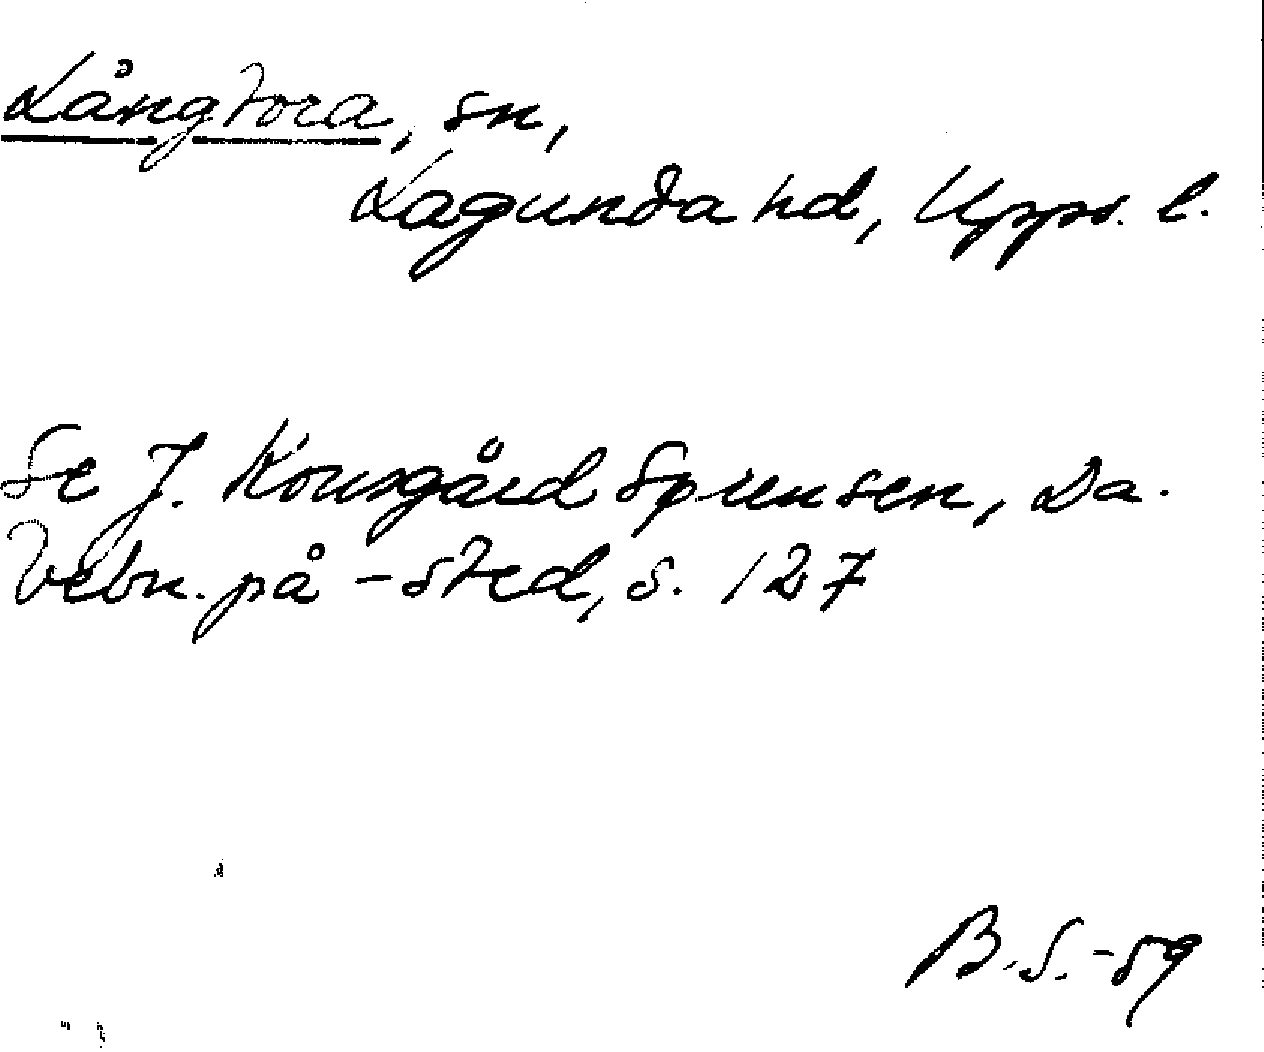 Långtora, sn,
Lagunda hd, Upps. l.
Se J. Kousgård Sørensen, Da.
bebn. på -sted, s. 127
B.S.-59